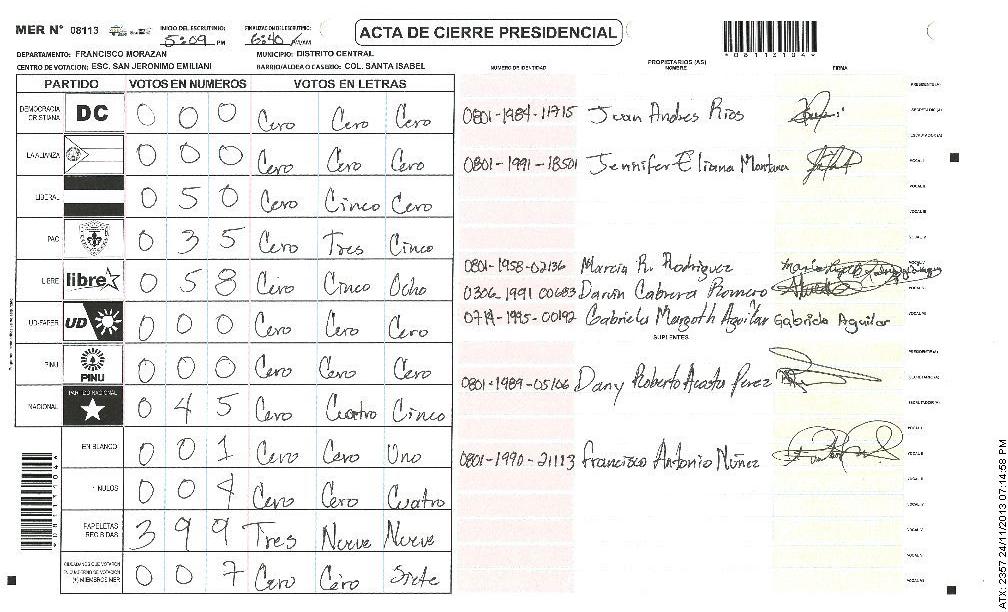 MER N° 08113 INICIO DEL ESCRUTINIO: 5:09 PM FINALIZACION DEL ESCRUTINIO: 6:40 PM/AM
ACTA DE CIERRE PRESIDENCIAL
DEPARTAMENTO: FRANCISCO MORAZAN MUNICIPIO: DISTRITO CENTRAL
CENTRO DE VOTACION: ESC. SAN JERONIMO EMILIANI BARRIO/ALDEA O CASERIO: COL. SANTA ISABEL
PARTIDO VOTOS EN NUMEROS VOTOS EN LETRAS
DEMOCRACIA CRISTIANA DC 0 0 0 Cero Cero Cero
LA ALIANZA 0 0 0 Cero Cero Cero
LIBERAL 0 5 0 Cero Cinco Cero
PAC 0 3 5 Cero Tres Cinco
LIBRE libre 0 5 8 Cero Cinco Ocho
UD-FAPER UD 0 0 0 Cero Cero Cero
PINU PINU 0 0 0 Cero Cero Cero
NACIONAL PARTIDO NACIONAL 0 4 5 Cero Cuatro Cinco
EN BLANCO 0 0 1 Cero Cero Uno
NULOS 0 0 4 Cero Cero Cuatro
PAPELETAS RECIBIDAS 3 9 9 Tres Nueve Nueve
CIUDADANOS QUE VOTARON
(+) MIEMBROS MER 0 0 7 Cero Cero Siete
PROPIETARIOS (AS)
NUMERO DE IDENTIDAD NOMBRE FIRMA
PRESIDENTE(A)
0801-1984-11715 Juan Andres Rios
SECRETARIO(A)
ESCRUTADOR(A)
0801-1991-18501 Jennifer Eliana Montana
VOCAL I
VOCAL II
VOCAL III
VOCAL IV
0801-1958-02136 Marcia R. Rodriguez
VOCAL V
0306-1991 00683 Darwin Cabrera Romero
0714-1995-00192 Gabriela Margoth Aguilar Gabriela Aguilar
SUPLENTES
PRESIDENTE(A)
0801-1989-05106 Dany Roberto Acosta Perez
SECRETARIO(A)
ESCRUTADOR(A)
VOCAL I
0801-1990-21113 Francisco Antonio Núñez
VOCAL II
VOCAL III
VOCAL IV
VOCAL V
ATX: 2357 24/11/2013 07:14:58 PM